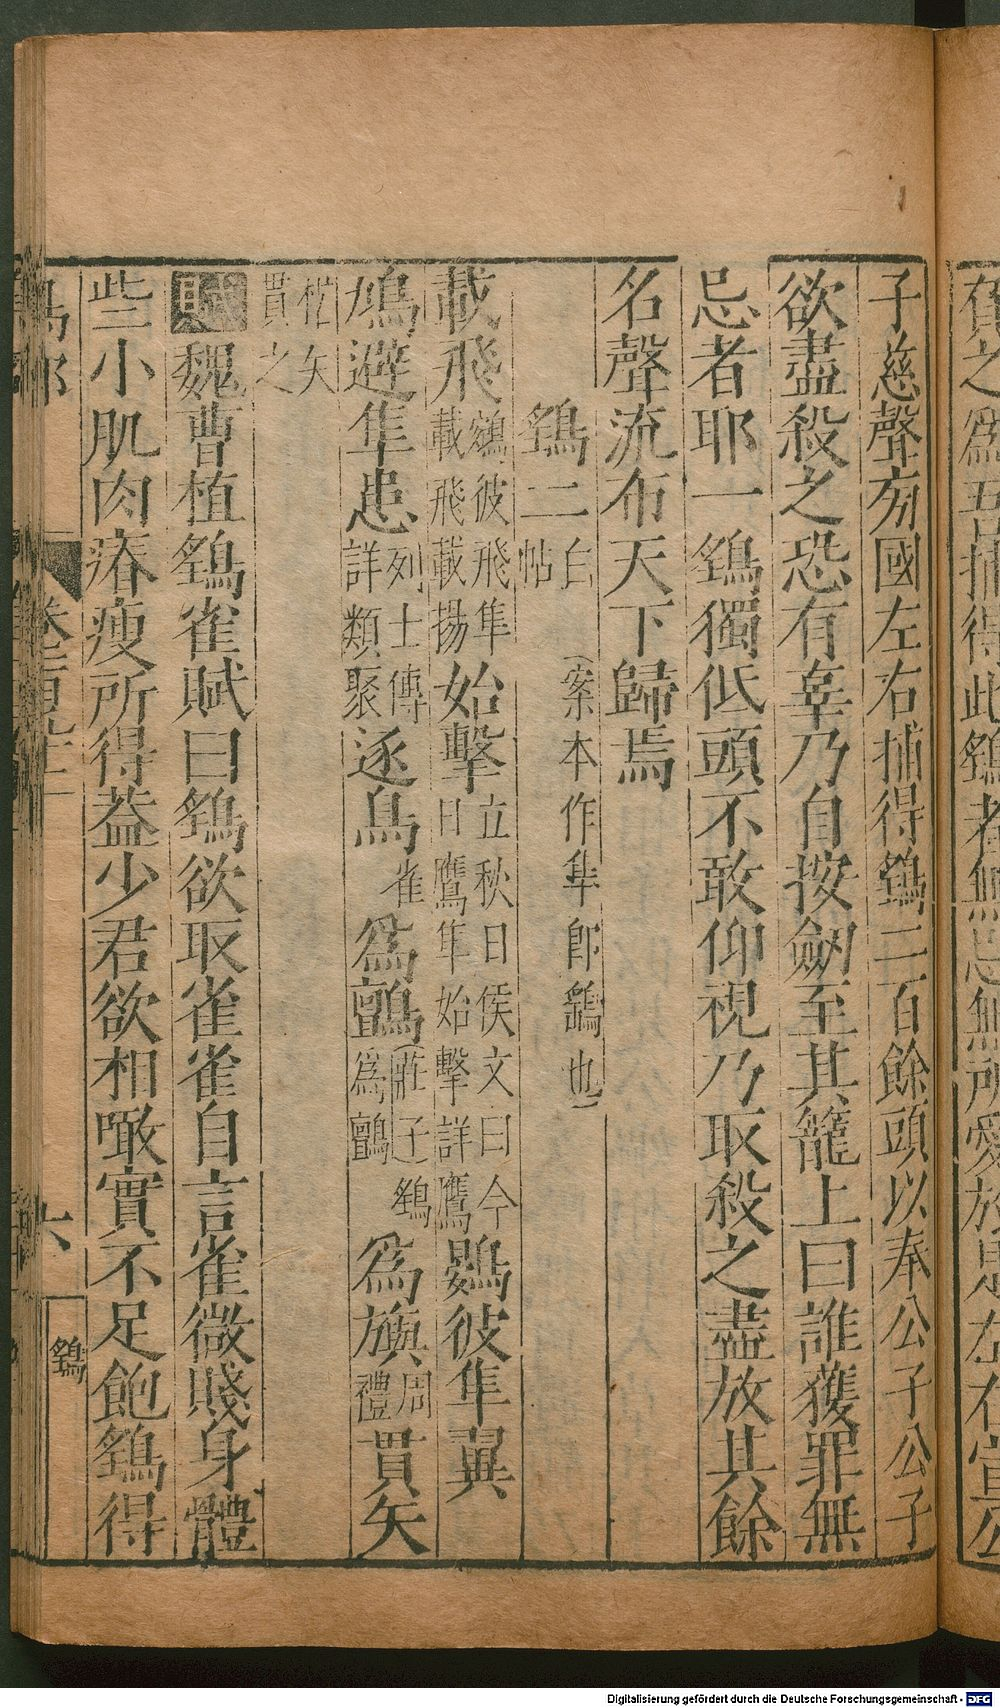 子慈聲旁國左右捕得鷂二百餘頭以奉公子公子
欲盡殺之恐有辜乃自按劒至其籠上曰誰獲罪無
忌者耶一鷂獨低頭不敢仰視乃取殺之盡放其餘
名聲流布天下歸焉
鷂二白帖(案本作隼即鷂也)
載飛鴥彼飛隼載飛載揚始擊立秋日侯文曰今日鷹隼始擊詳鷹鴥彼隼翼
鳩避隼患列士傳詳類聚逐鳥雀為鸇(莊子鷂為鸇為旟周禮貫矢
楛矢貫之
賦魏曹植鷂雀賦曰鷂欲取雀雀自言雀微賤身體
些小肌肉瘠瘦所得葢少君欲相噉實不足飽鷂得
鳥部
六
鷂
舊之為吾捕得此鷂者無忌無所愛於是左右宣公
Digitalisierung gefördert durch die Deutsche Forschungsgemeinschaft - DFG